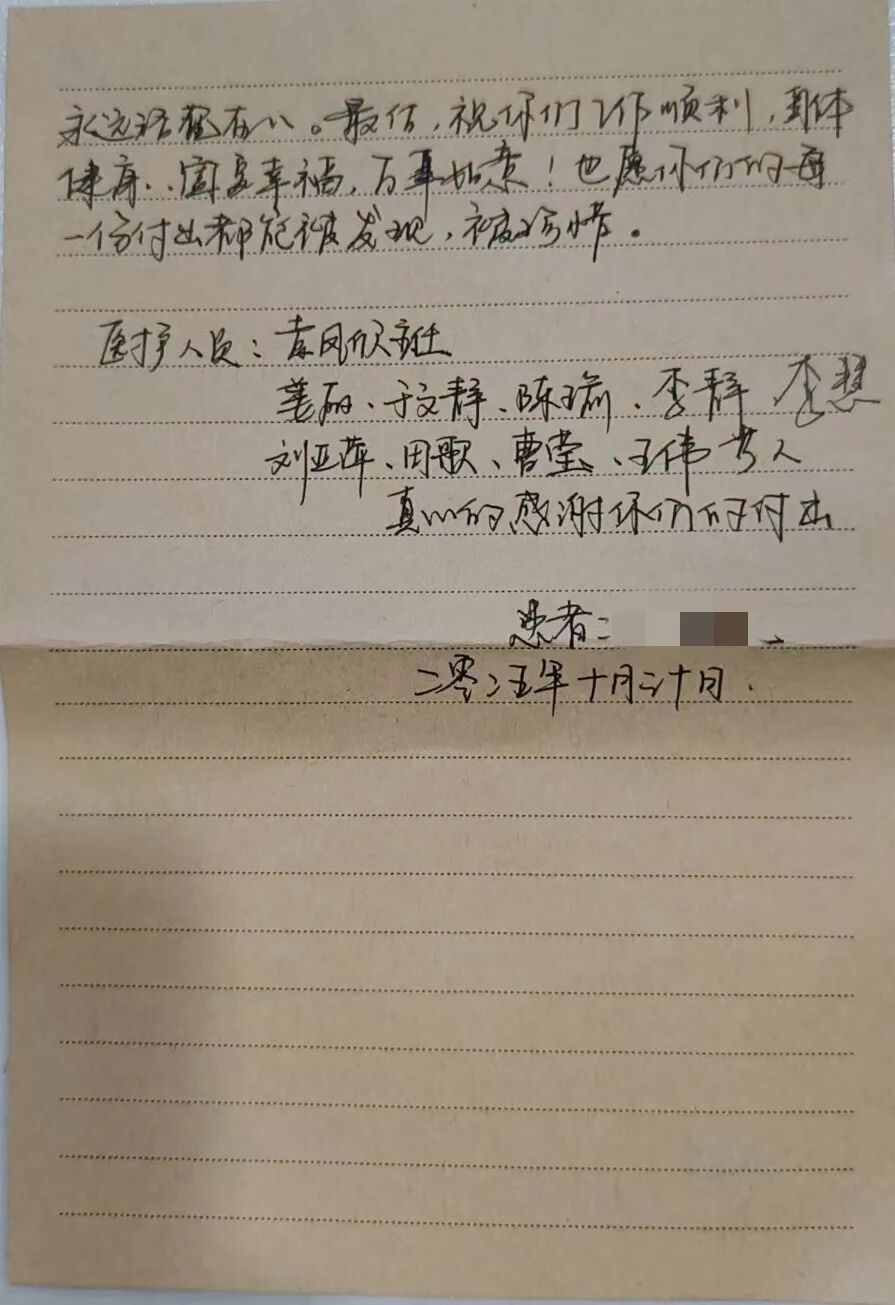 永远记在心。最后,祝你们工作顺利,身体
健康、阖家幸福,万事如意!也愿你们的每
一份付出都能被发现,被珍惜。
医护人员:凤欣主任
姜丽、于文静、陈瑜、李静 李慧
刘亚萍、田歌、曹莹、王伟等人
真心的感谢你们的付出
患者:
二零二五年十月二十日.